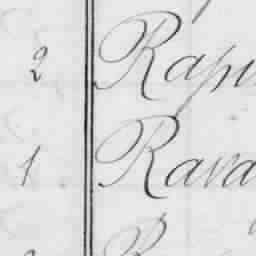 2 Rapi
1 Rava